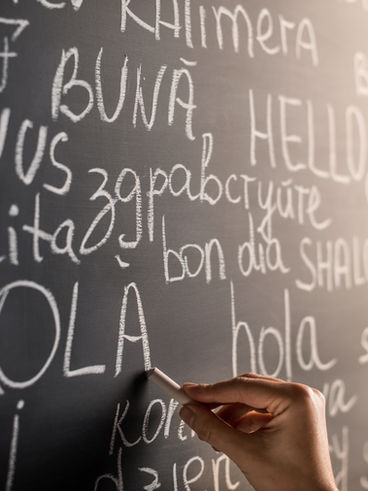 Kalimera
BUNĀ
HELLO
us здравствуйте
ita bon dia SHALO
OLÀ hola
Kon
dzień